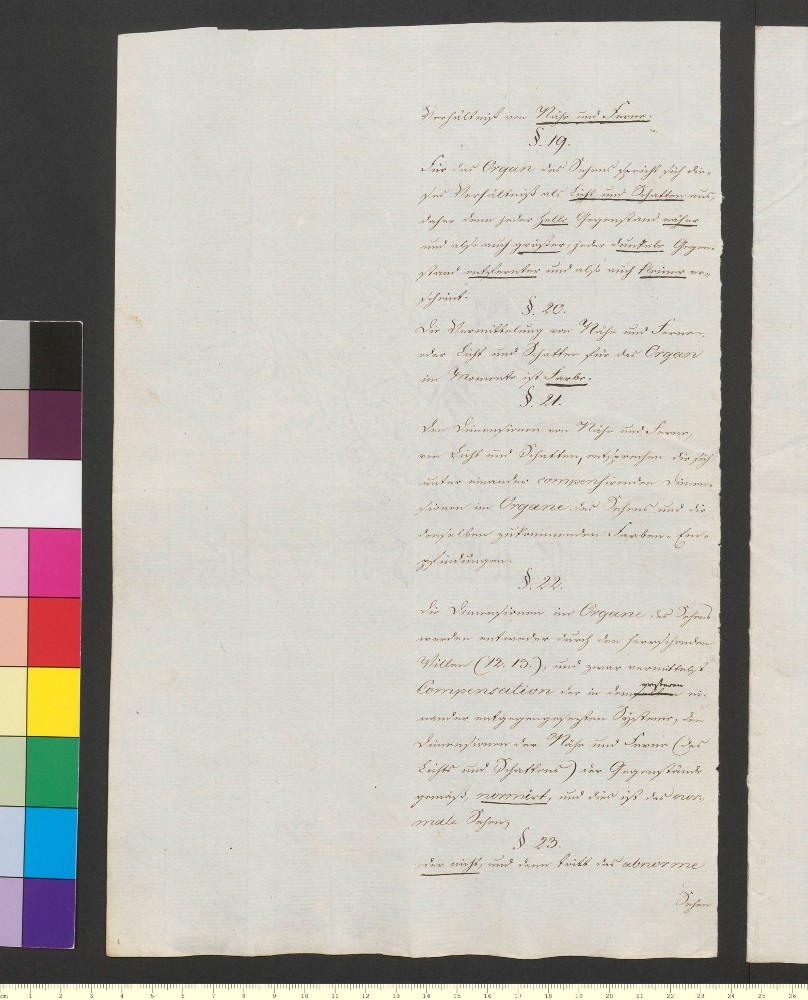 Verhältniß von Nähe und Ferne.
§. 19.
Für das Organ des Sehens spricht sich die-
ses Verhältniß als Licht und Schatten aus,
daher denn jeder helle Gegenstand näher
und also auch größer, jeder dunkele Gegen-
stand entfernter und also auch kleiner er-
scheint.
§. 20.
Die Vermittelung von Nähe und Ferne
oder Licht und Schatten für das Organ
im Momente ist Farbe.
§. 21.
Den Dimensionen von Nähe und Ferne,
von Licht und Schatten, entsprechen die sich
unter einander compensirenden Dimen-
sionen im Organe des Sehens und die
denselben zukommenden Farben-Em-
pfindungen.
§. 22.
Die Dimensionen im Organe des Sehens
werden entweder durch den herrschenden
Willen (12. 13.), und zwar vermittelst
Compensation der in dem ersteren ei-
nander entgegengesezten Systeme, den
Dimensionen der Nähe und Ferne (des
Lichts und Schattens) der Gegenstände
gemäß, normirt, und dies ist das nor-
male Sehen,
§. 23.
oder nicht, und dann tritt das abnorme
Sehen